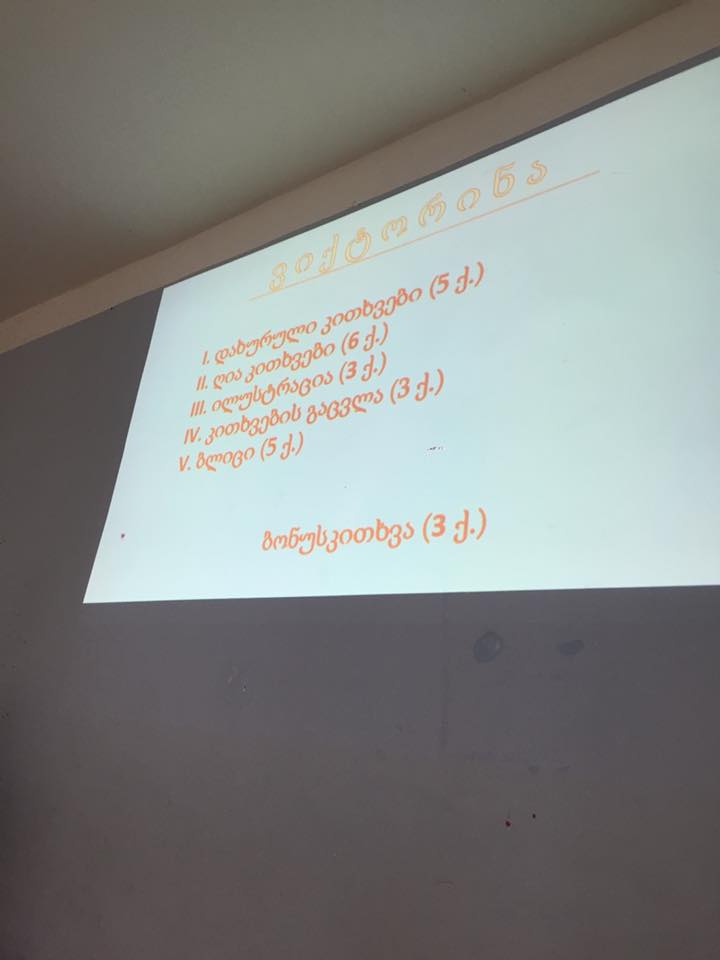 ვიქტორინა
I. დახურული კითხვები (5 ქ.)
II. ღია კითხვები (6 ქ.)
III. ილუსტრაცია (3 ქ.)
IV. კითხვების გაცვლა (3 ქ.)
V. ბლიცი (5 ქ.)
ბონუსკითხვა (3 ქ.)